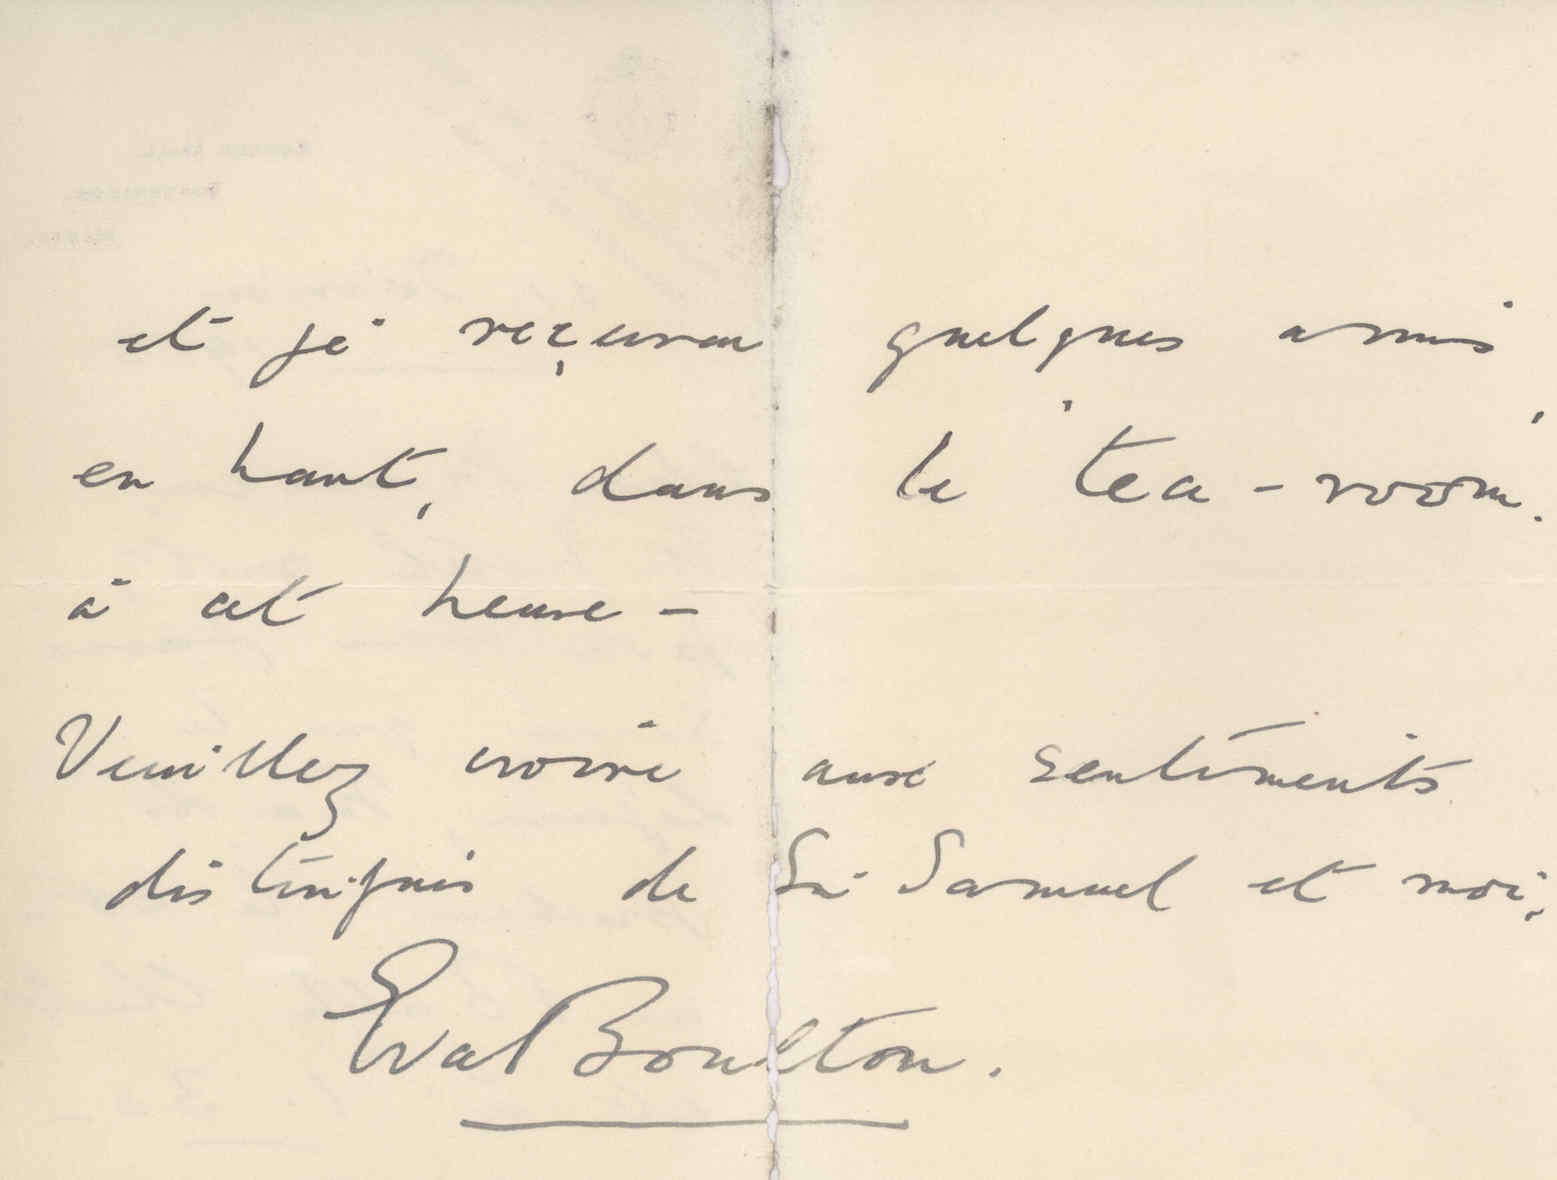 et je reçevrai quelques amis
en haut, dans le 'tea-room'.
à cet heure -
Veuillez croire aux sentiments
distingués de Sir Samuel et moi,
Eva Boulton.